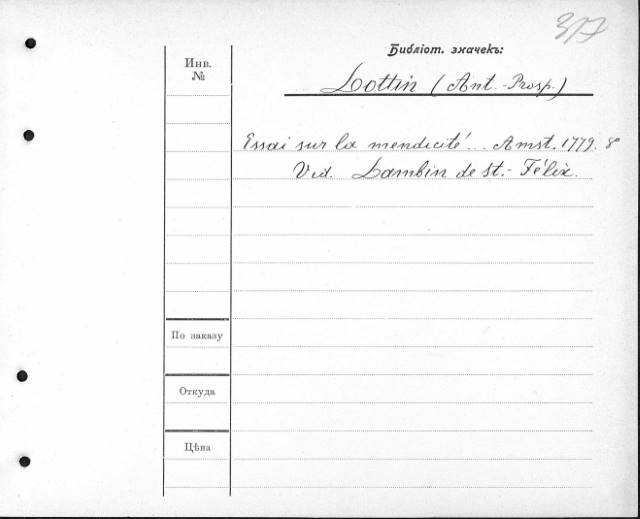 317
Библіот. значекъ:
Инв.
№
Lottin (Ant.-Prosp.)
Essai sur la mendicité... Amst. 1779. 8°
Vid. Lambin de St.-Félix.
По заказу
Откуда
Цѣна